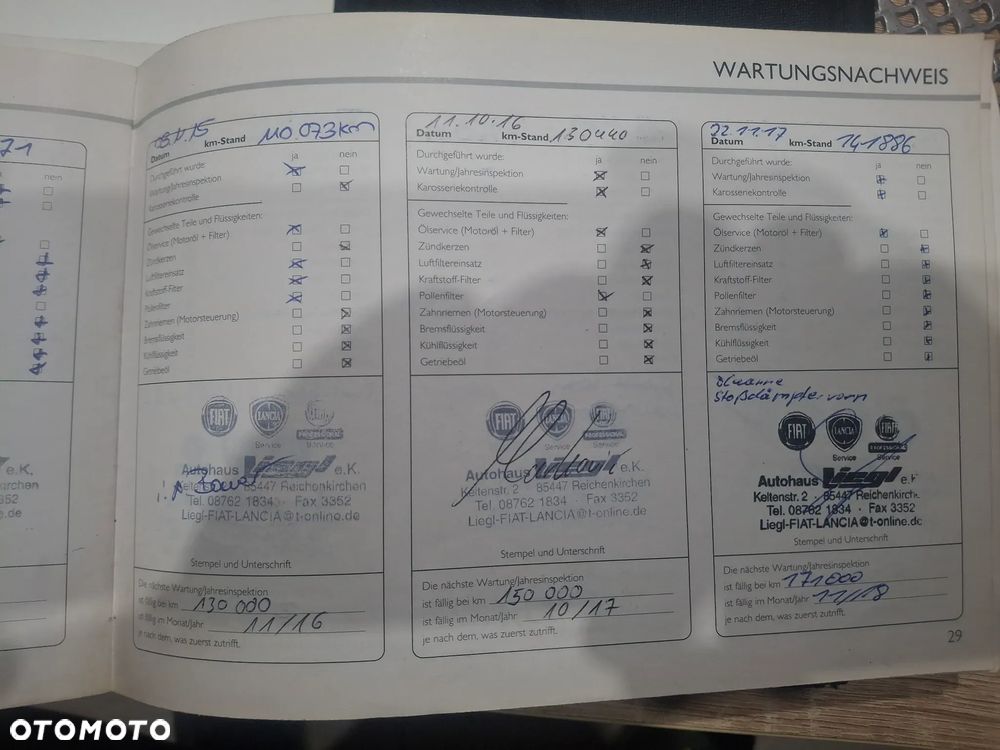 WARTUNGSNACHWEIS
71
nein
e.K.
kirchen
3352
.de
Datum km-Stand 110.073km
ja nein
Durchgeführt wurde:
Wartung/Jahresinspektion
Karosseriekontrolle
Gewechselte Teile und Flüssigkeiten:
Ölservice (Motoröl + Filter)
Zündkerzen
Luftfiltereinsatz
Kraftstoff-Filter
Pollenfilter
Zahnriemen (Motorsteuerung)
Bremsflüssigkeit
Kühlflüssigkeit
Getriebeöl
FIAT LANCIA FIAT
PROFESSIONAL
Service Service
Autohaus Liegl e.K.
85447 Reichenkirchen
Tel. 08762 1834 · Fax 3352
Liegl-FIAT-LANCIA@t-online.de
Stempel und Unterschrift
Die nächste Wartung/Jahresinspektion
ist fällig bei km 130 000
ist fällig im Monat/Jahr 11/16
je nach dem, was zuerst zutrifft.
11.10.16
Datum km-Stand 130440
ja nein
Durchgeführt wurde:
Wartung/Jahresinspektion
Karosseriekontrolle
Gewechselte Teile und Flüssigkeiten:
Ölservice (Motoröl + Filter)
Zündkerzen
Luftfiltereinsatz
Kraftstoff-Filter
Pollenfilter
Zahnriemen (Motorsteuerung)
Bremsflüssigkeit
Kühlflüssigkeit
Getriebeöl
FIAT LANCIA FIAT
PROFESSIONAL
Service Service
Autohaus Liegl e.K.
Keltenstr. 2 · 85447 Reichenkirchen
Tel. 08762 1834 · Fax 3352
Liegl-FIAT-LANCIA@t-online.de
Stempel und Unterschrift
Die nächste Wartung/Jahresinspektion
ist fällig bei km 150 000
ist fällig im Monat/Jahr 10/17
je nach dem, was zuerst zutrifft.
22.11.17
Datum km-Stand 141886
ja nein
Durchgeführt wurde:
Wartung/Jahresinspektion
Karosseriekontrolle
Gewechselte Teile und Flüssigkeiten:
Ölservice (Motoröl + Filter)
Zündkerzen
Luftfiltereinsatz
Kraftstoff-Filter
Pollenfilter
Zahnriemen (Motorsteuerung)
Bremsflüssigkeit
Kühlflüssigkeit
Getriebeöl
Ölwanne
Stoßdämpfer vorn
FIAT LANCIA FIAT
PROFESSIONAL
Service Service
Autohaus Liegl e.K
Keltenstr. 2 · 85447 Reichenkirch.
Tel. 08762 1834 · Fax 3352
Liegl-FIAT-LANCIA@t-online.de
Stempel und Unterschrift
Die nächste Wartung/Jahresinspektion
ist fällig bei km 171000
ist fällig im Monat/Jahr 11/18
je nach dem, was zuerst zutrifft.
29
OTOMOTO